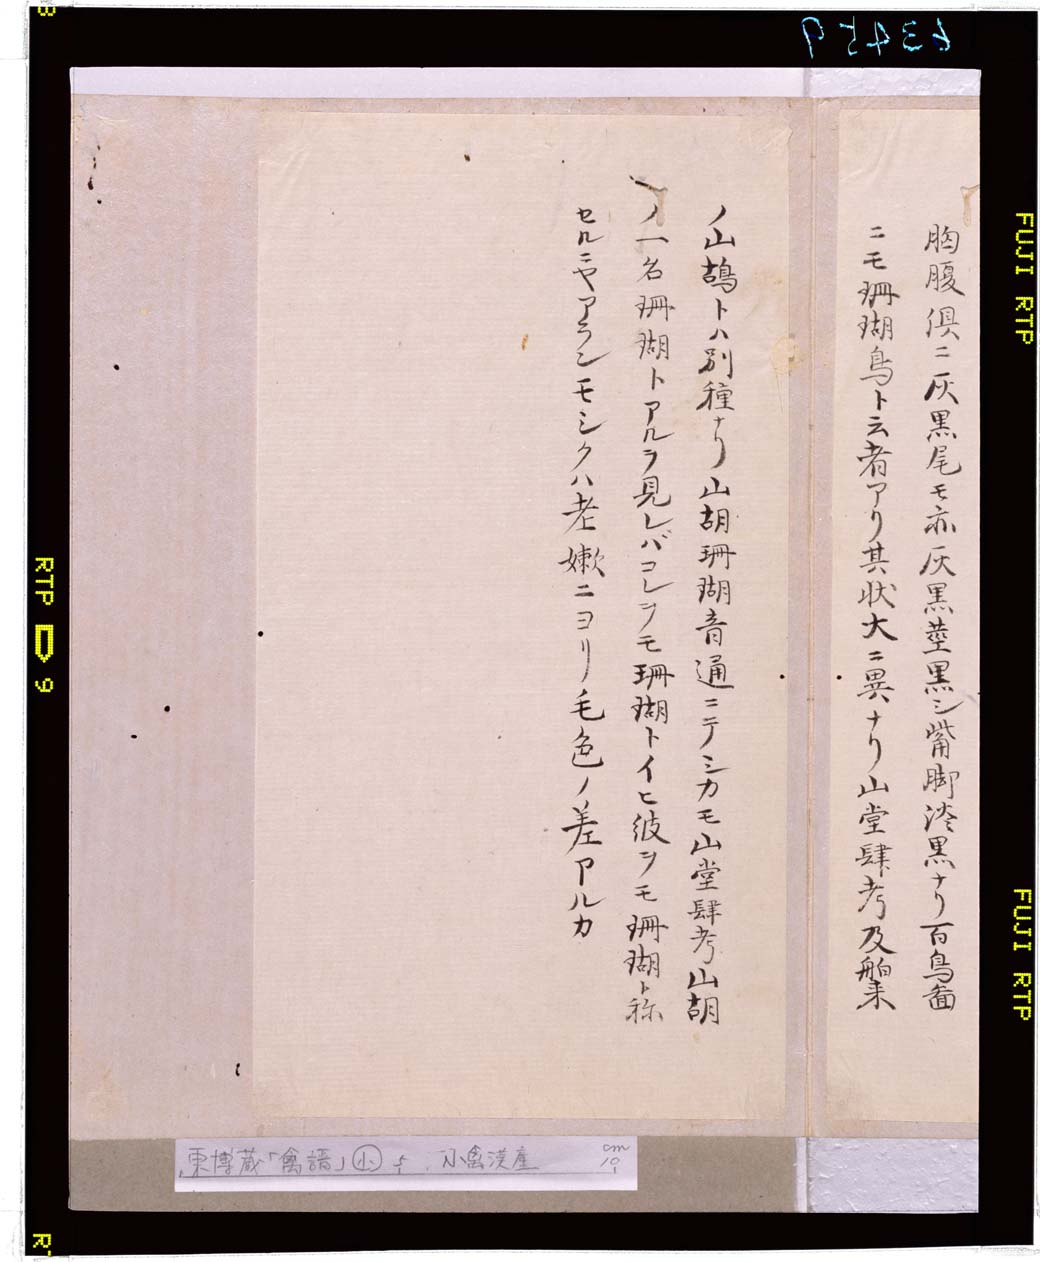 63459
胸腹倶ニ灰黒尾モ亦灰黒茎黒シ嘴脚淡黒ナリ百鳥畣
ニモ珊瑚鳥ト云者アリ其状大ニ異ナリ山堂肆考及舶来
ノ山鵠トハ別種ナリ山胡珊瑚音通ニテシカモ山堂肆考山胡
ノ一名珊瑚トアルヲ見レバコレヲモ珊瑚トイヒ彼ヲモ珊瑚ト称
セルニヤアランモシクハ老嫩ニヨリ毛色ノ差アルカ
東博蔵「禽譜」小 小禽漢産
cm
10
FUJI RTP
FUJI RTP
RTP 9